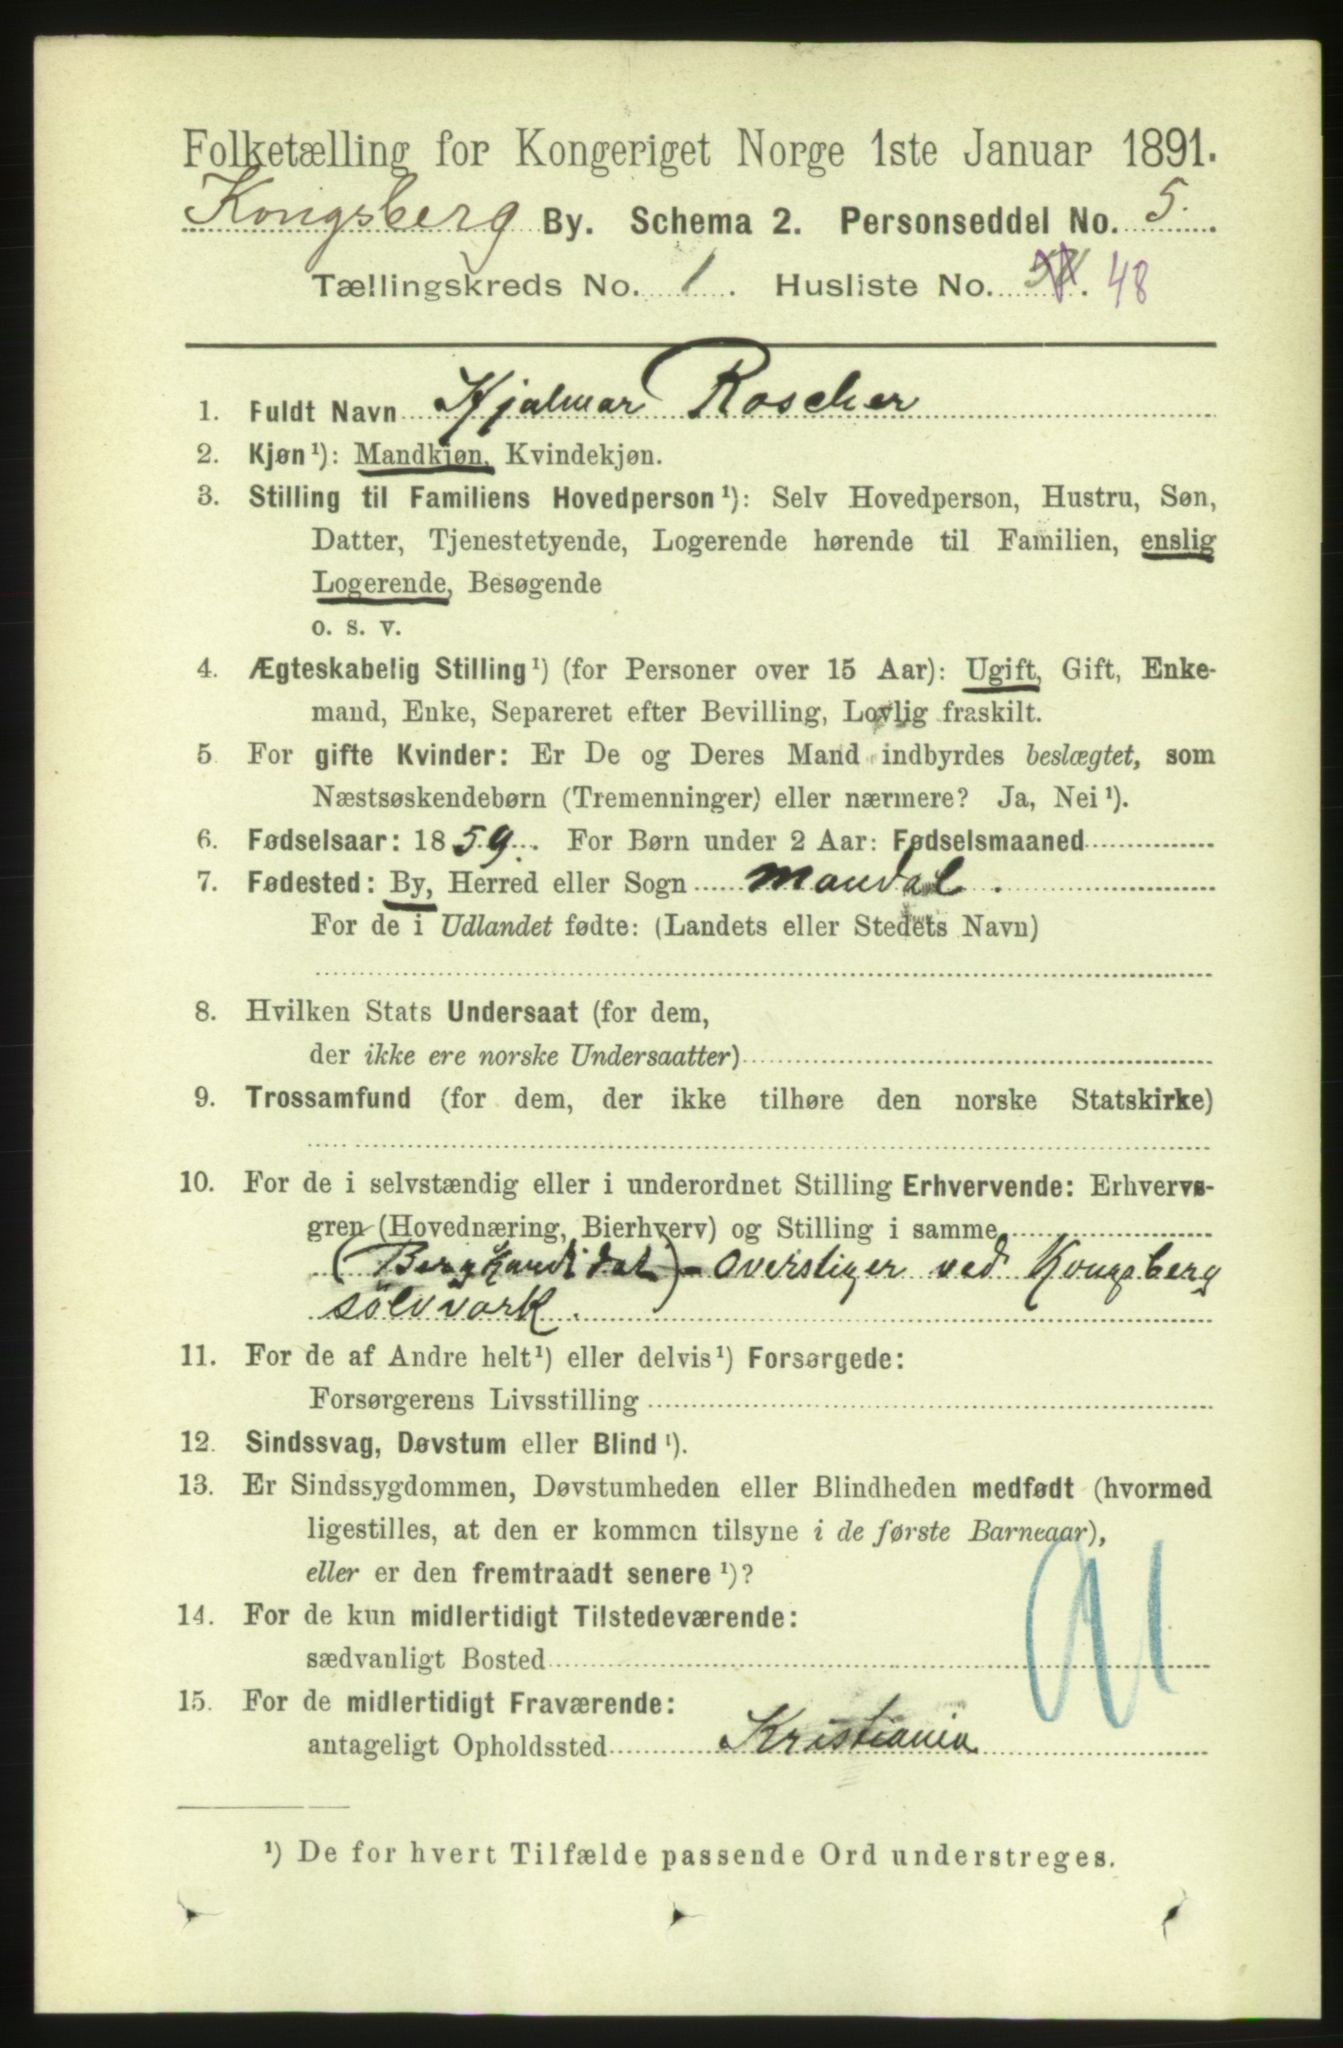 Folketælling for Kongeriget Norge 1ste Januar 1891.
Kongsberg By. Schema 2. Personseddel No. 5.
Tællingskreds No. 1. Husliste No. 48
1. Fuldt Navn Hjalmar Roscher
2. Kjøn¹): Mandkjøn, Kvindekjøn.
3. Stilling til Familiens Hovedperson¹): Selv Hovedperson, Hustru, Søn,
Datter, Tjenestetyende, Logerende hørende til Familien, enslig
Logerende, Besøgende
o. s. v.
4. Ægteskabelig Stilling¹) (for Personer over 15 Aar): Ugift, Gift, Enke-
mand, Enke, Separeret efter Bevilling, Lovlig fraskilt.
5 For gifte Kvinder: Er De og Deres Mand indbyrdes beslægtet, som
Næstsøskendebørn (Tremenninger) eller nærmere? Ja, Nei¹).
6. Fødselsaar: 1859. For Børn under 2 Aar: Fødselsmaaned
7. Fødested: By, Herred eller Sogn Mandal.
For de i Udlandet fødte: (Landets eller Stedets Navn)
8. Hvilken Stats Undersaat (for dem,
der ikke ere norske Undersaatter)
9. Trossamfund (for dem, der ikke tilhøre den norske Statskirke)
10. For de i selvstændig eller i underordnet Stilling Erhvervende: Erhvervs-
gren (Hovednæring, Bierhverv) og Stilling i samme
(Bergkandidat) - overstiger ved Kongsberg
sölvværk.
11. For de af Andre helt¹) eller delvis¹) Forsørgede:
Forsørgerens Livsstilling
12. Sindssvag, Døvstum eller Blind¹).
13. Er Sindssygdommen, Døvstumheden eller Blindheden medfødt (hvormed
ligestilles, at den er kommen tilsyne i de første Barneaar),
eller er den fremtraadt senere¹)?
14. For de kun midlertidigt Tilstedeværende:
sædvanligt Bosted
15. For de midlertidigt Fraværende:
antageligt Opholdssted Kristiania
¹) De for hvert Tilfælde passende Ord understreges.